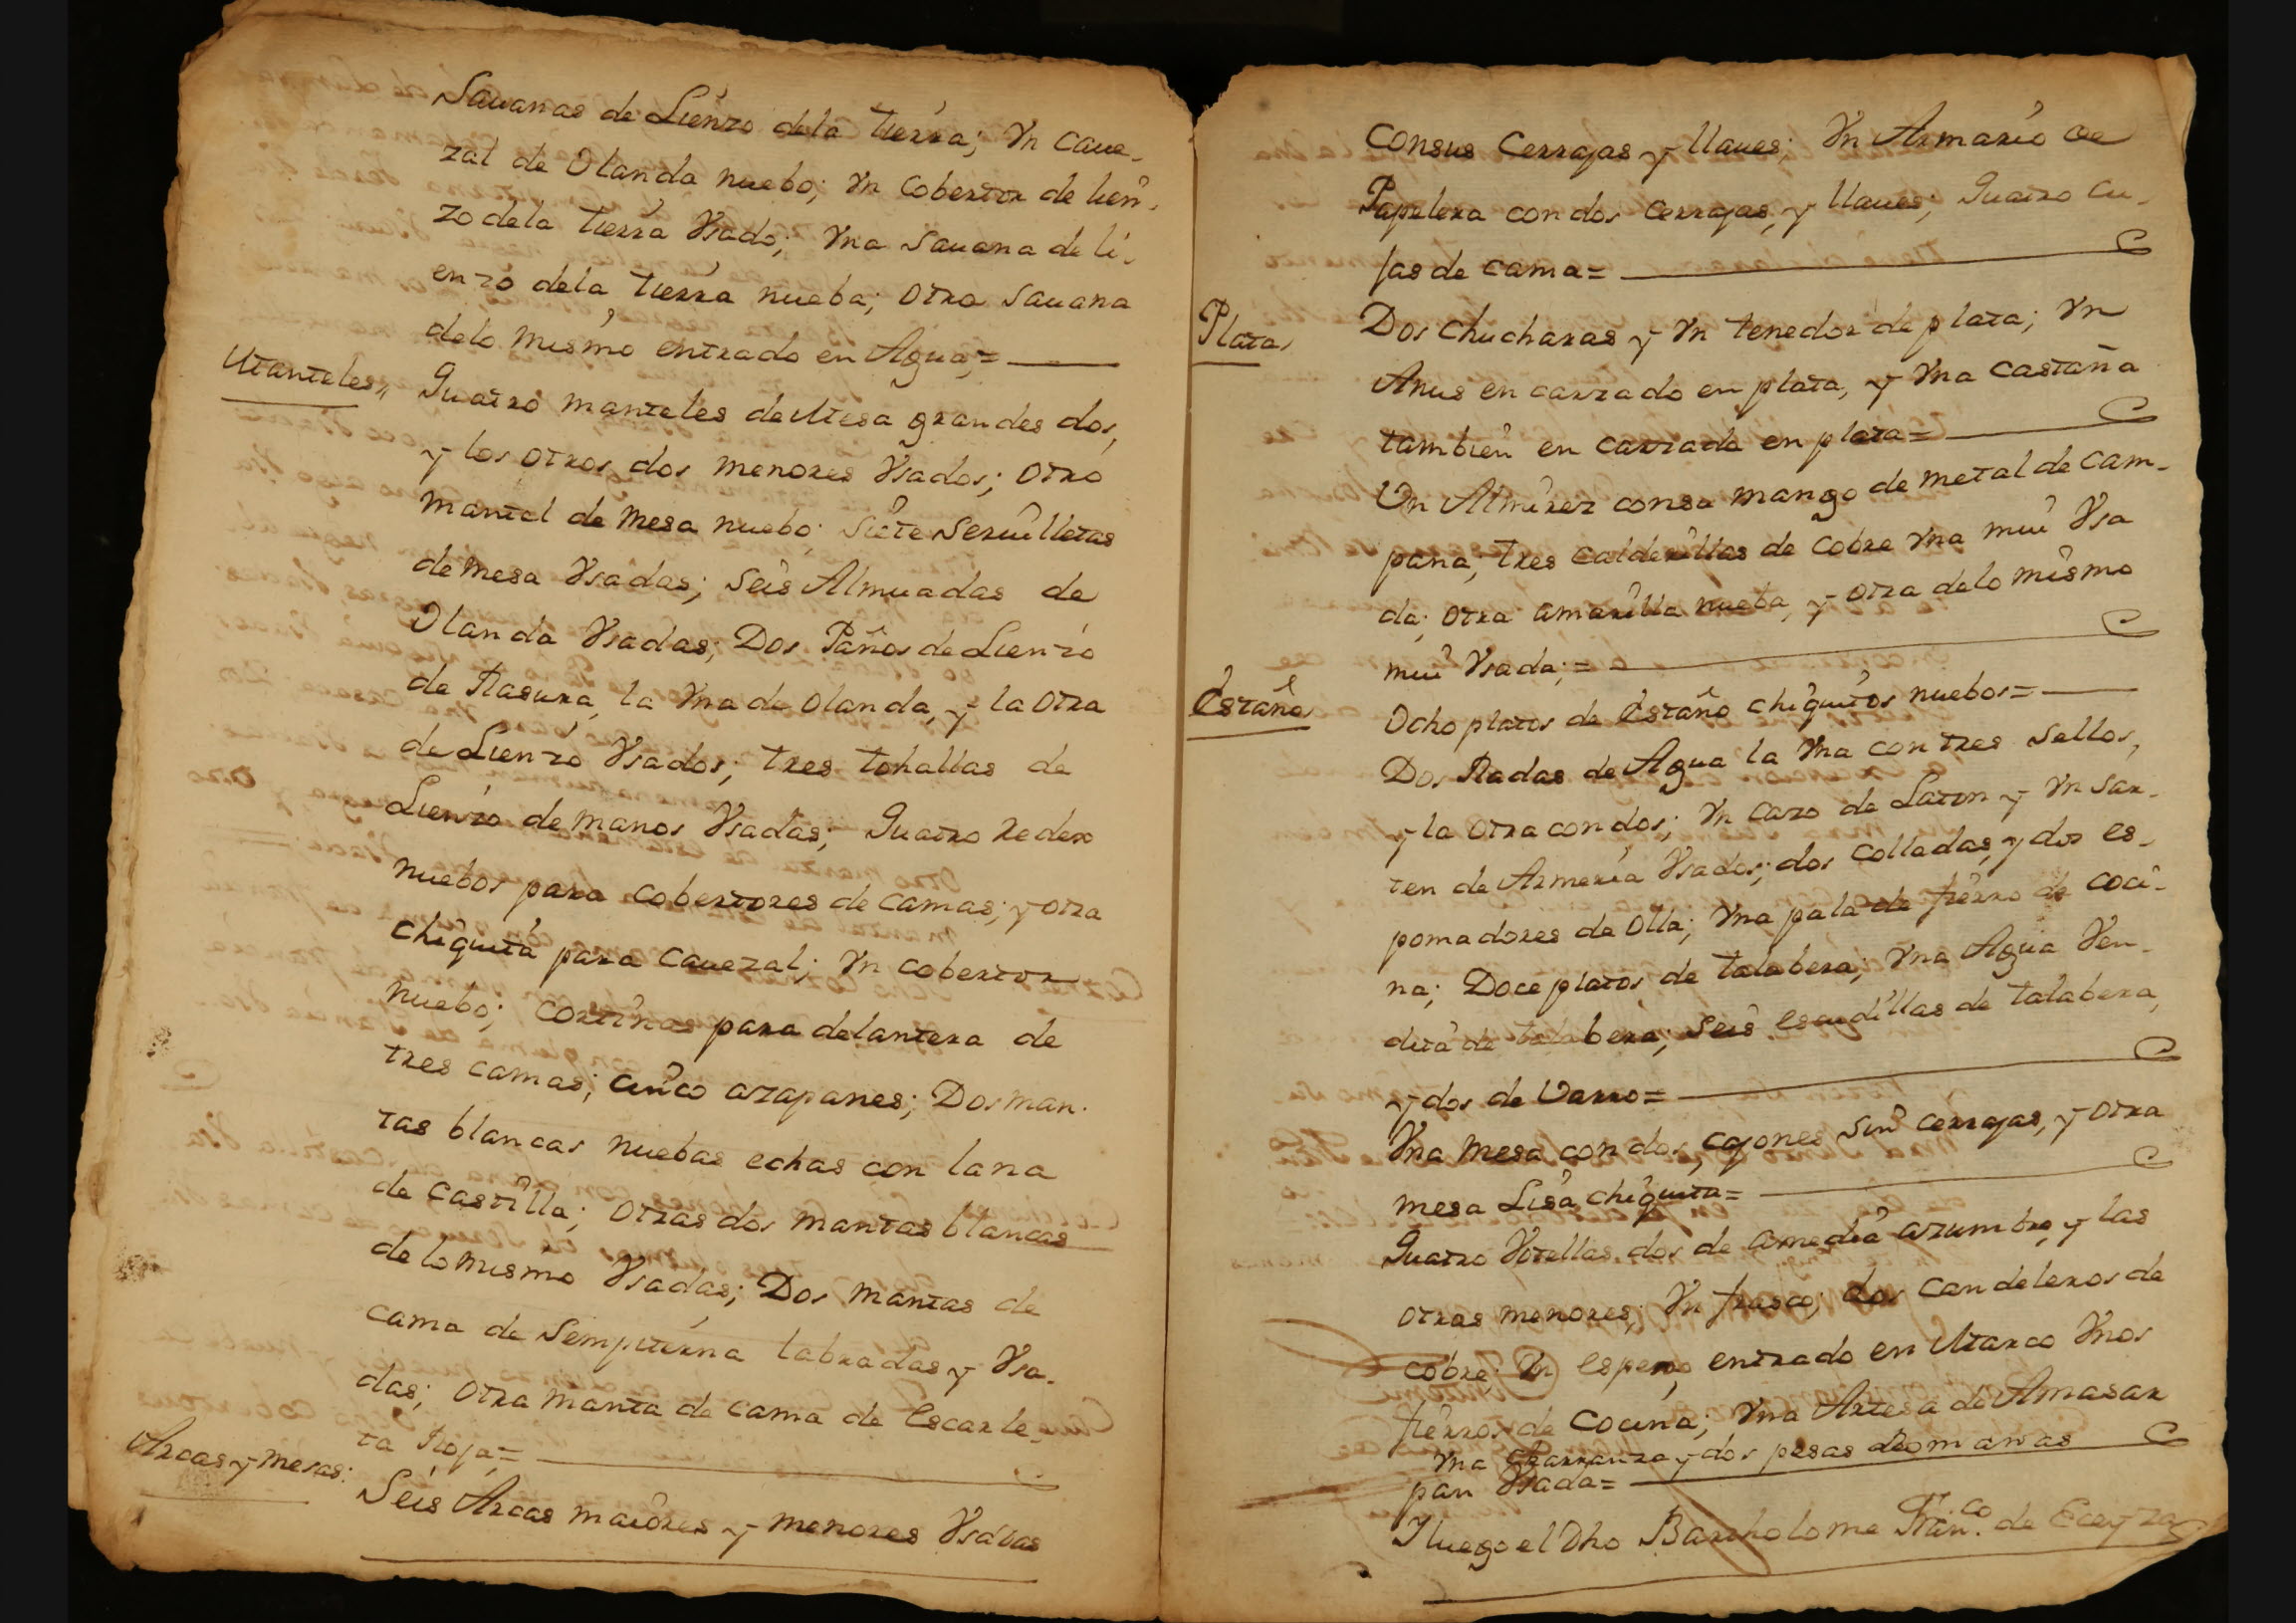 Sauanas de Lienzo dela tierra; Vn Caue-
zal de Olanda nuebo; Vn Cobertor de lien-
zo dela tierra Vsado; Vna Sauana de li-
enzo dela tierra nueba; Otra Sauana
delo mismo entrado en Agua,=
Manteles,, Quatro manteles de Mesa grandes dos,
y los otros dos menores Vsados; Otro
mantel de mesa nuebo; Siete Seruilletas
de mesa Vsadas; Seis Almuadas de
Olanda Vsadas; Dos Paños de Lienzo
de Rasura, la Vna de Olanda, y la Otra
de Lienzo Vsados; tres tohallas de
Lienzo de manos Vsadas; Quatro redes
nuebos para cobertores de camas; y otra
chiquita para Cauezal; Vn cobertor
nuebo; cortinas para delantera de
tres camas; cinco azapanes; Dos man-
tas blancas nuebas echas con lana
de castilla; Otras dos mantas blancas
de lo mismo Vsadas; Dos mantas de
cama de Sempiterna labradas y Vsa-
das; Otra manta de cama de Escarle-
ta Roja,=
Arcas y mesas: Seis Arcas maiores y menores Vsadas
Consus Cerrajas y llaues; Vn Armario de
Papelera con dos Cerrajas, y llaues; Quatro Cu-
jas de cama=
Plata, Dos Chucharas y Vn tenedor de plata; Vn
Anus en carzado en plata, y Vna castaña
tambien en carzada en plata=
Vn Almirez consu mango de metal de cam-
pana; tres calderillas de cobre Vna mui Vsa
da; otra amarilla nueba, y otra delo mismo
mui Vsada;=
Estaño Ocho platos de Estaño chiquitos nuebos=
Dos Radas de Agua la Vna con tres sellos,
y la Otra con dos; Vn Cazo de Laton y Vn sar-
ten de Armeria Vsados; dos colladas, y dos es-
pomadores de Olla; Vna pala de fierro de coci-
na; Doce platos de talabera; Vna Agua Ven-
dita de talabera; Seis escudillas de talabera,
y dos de Varro=
Vna Mesa con dos cajones sin cerrajas, y otra
mesa Lisa chiquita=
Quatro Votellas, dos de amedia azumbre, y las
otras menores; Vn frasco; dos candeleros de
cobre; Vn espejo, entrado en Marco Vnos
fierros de Cocina; Vna Artesa de Amasar
Vna y dos pesas Romanas
pan Vsada=
Y luego el Dho Bartholome Fran.co de Eceyza